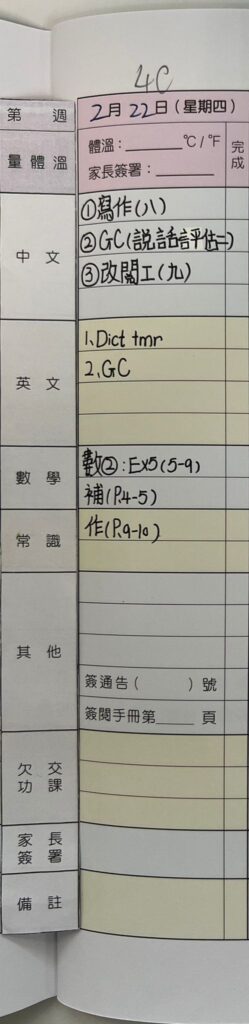 4C
第 週
2月22日(星期四)
量體溫
體溫：______°C/°F
家長簽署：______
完成
中文
①寫作(八)
②GC(説話評估二)
③改閱工(九)
英文
1. Dict tmr
2. GC
數學
數②：Ex5(5-9)
補(P.4-5)
常識
作(P.9-10)
其他
簽通告( )號
簽閱手冊第____頁
欠交功課
家長簽署
備註